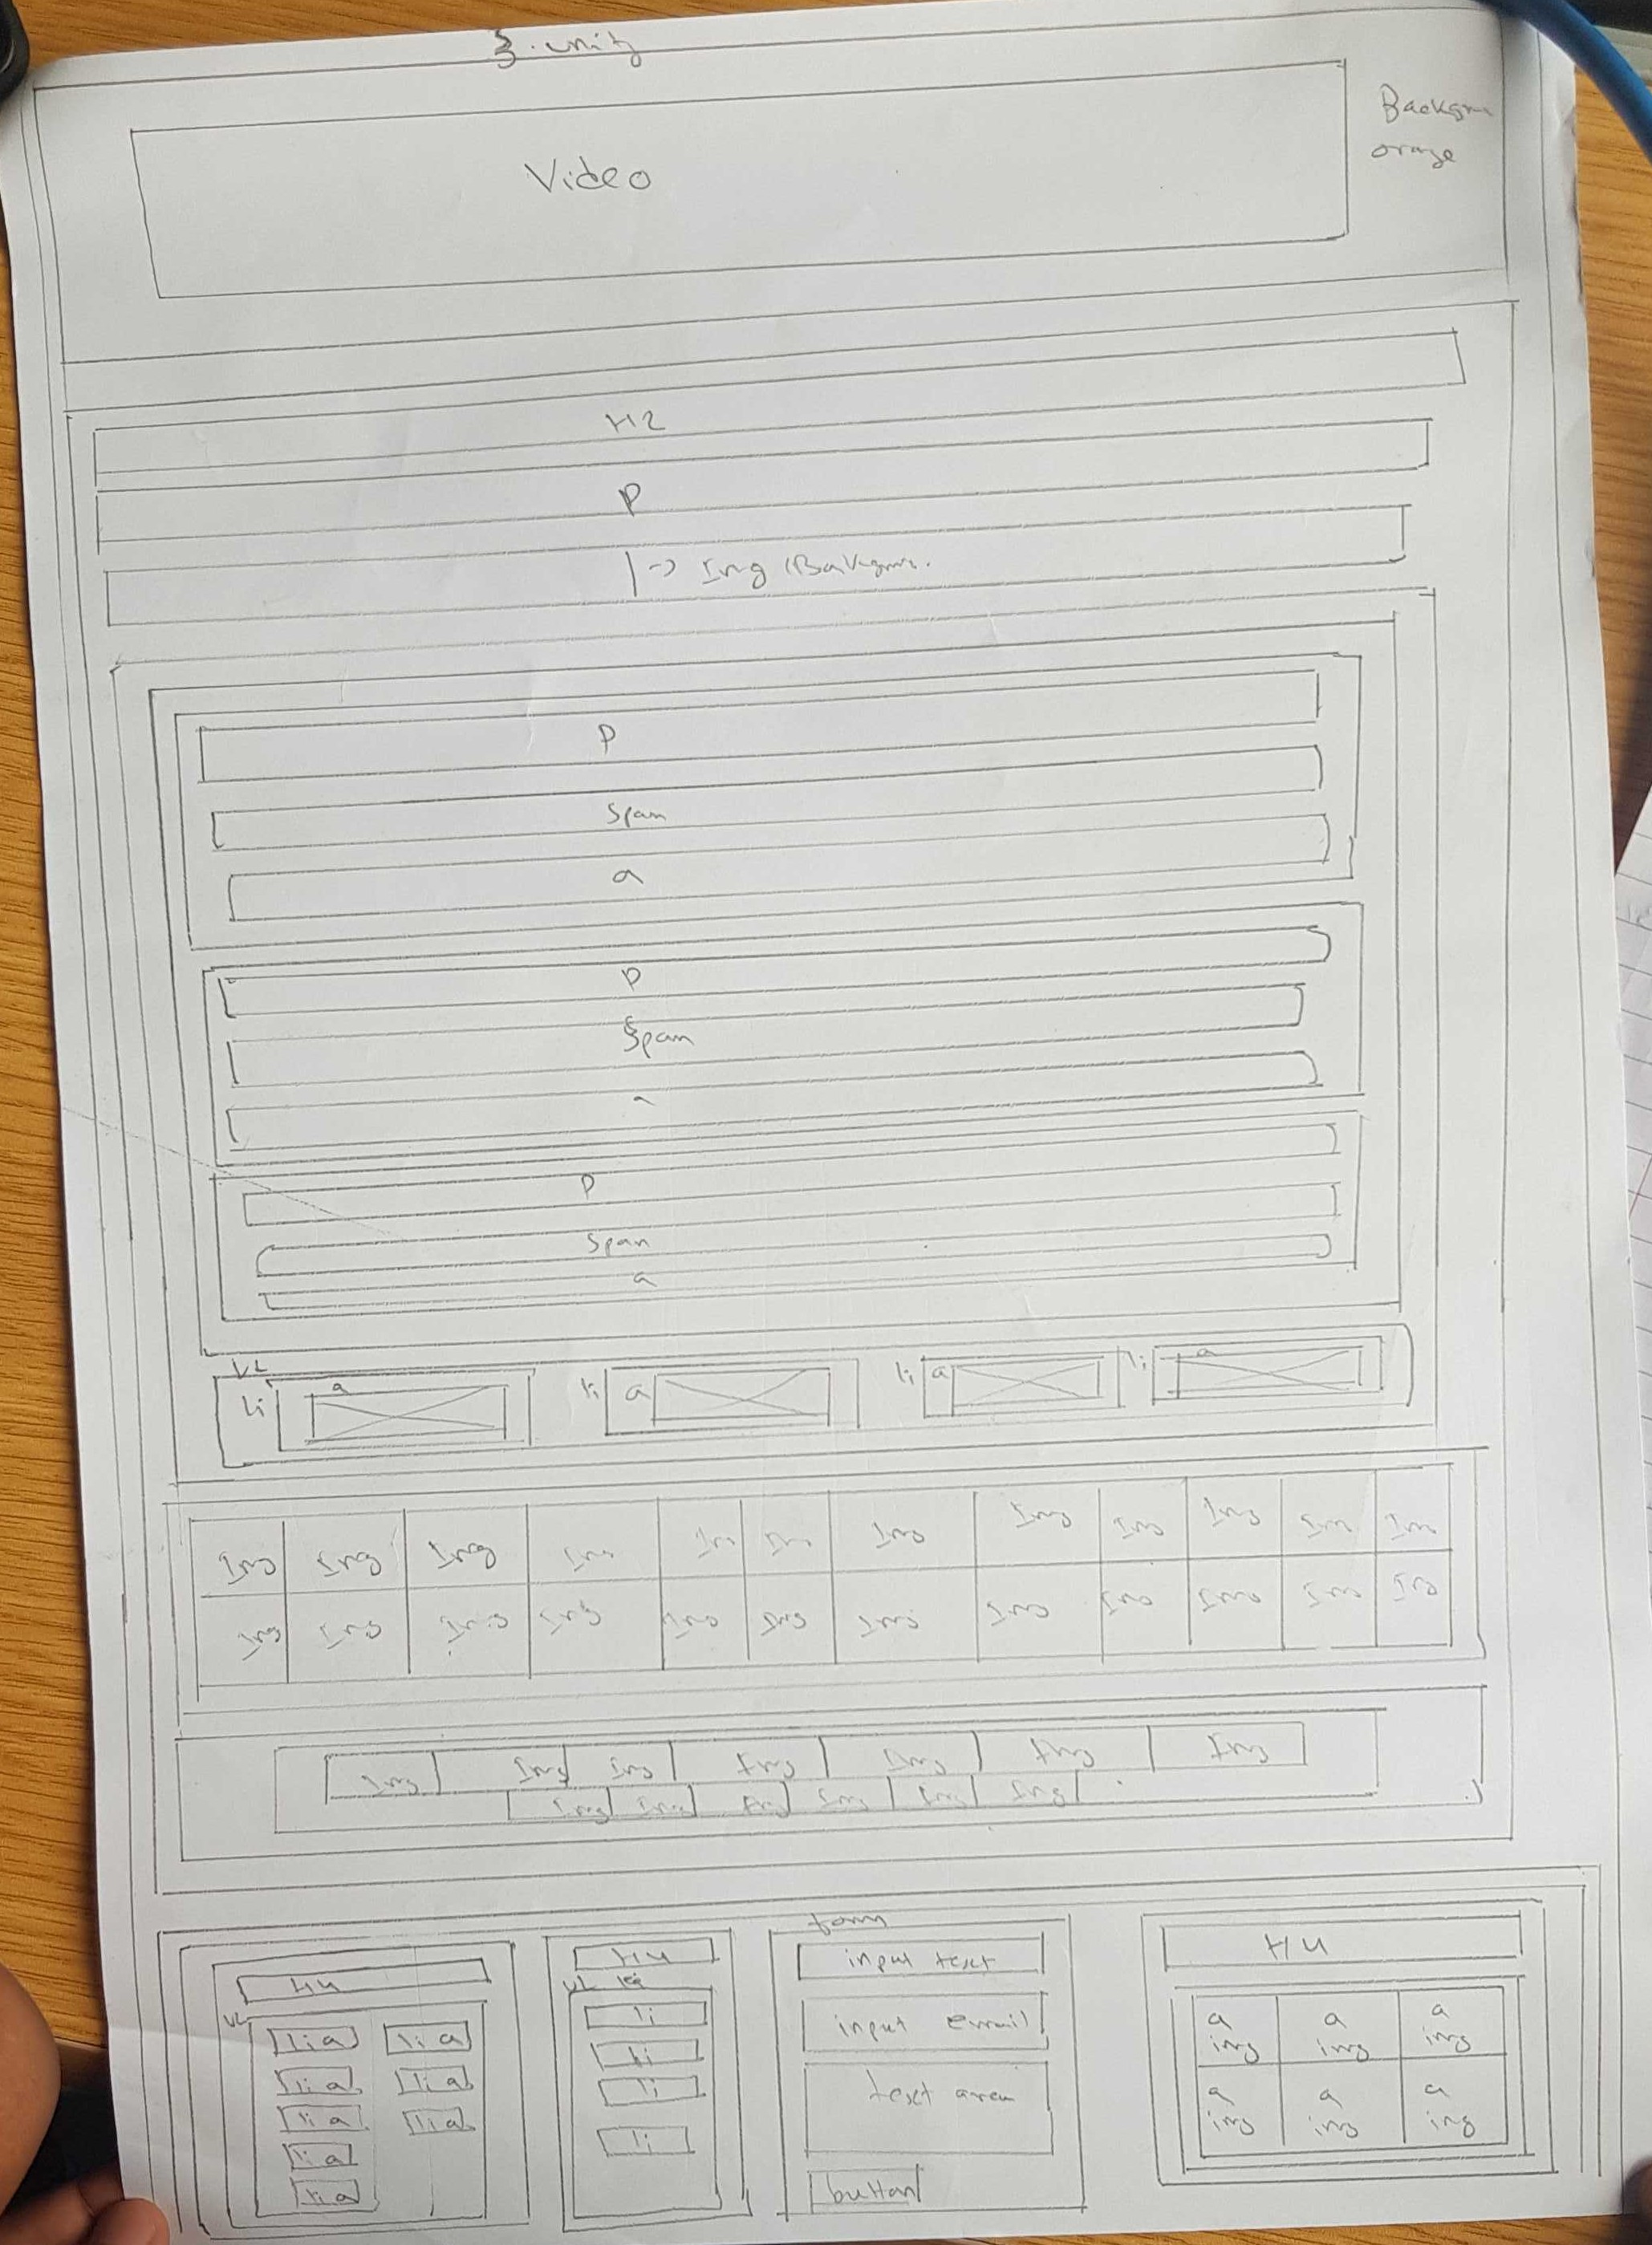 3. unity
Backgrn
orange
Video
H2
P
| -> Img (Bakgrn.
P
Span
a
P
Span
a
P
Span
a
UL
li a li a li a li a
Img Img Img Img Im Im Img Img Img Img Im Im
Img Img Img Img Img Img Img Img Img Img Img Img
Img Img Img Img Img Img Img
Img Img Img Img Img Img
H4
UL
li a li a
li a li a
li a li a
li a
li a
H4
UL li
li
li
li
li
form
input text
input email
text area
button
H4
a a a
img img img
a a a
img img img